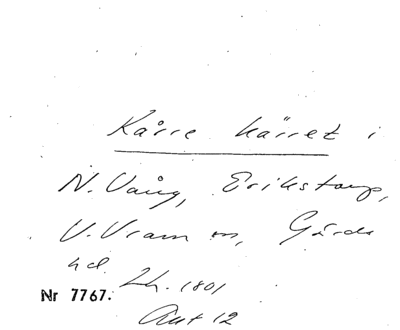 Kårre kärret i
N. Vång, Erikstorp,
V. Vram m, Gärds
hd. Lh. 1801
Nr 7767.
Akt 12